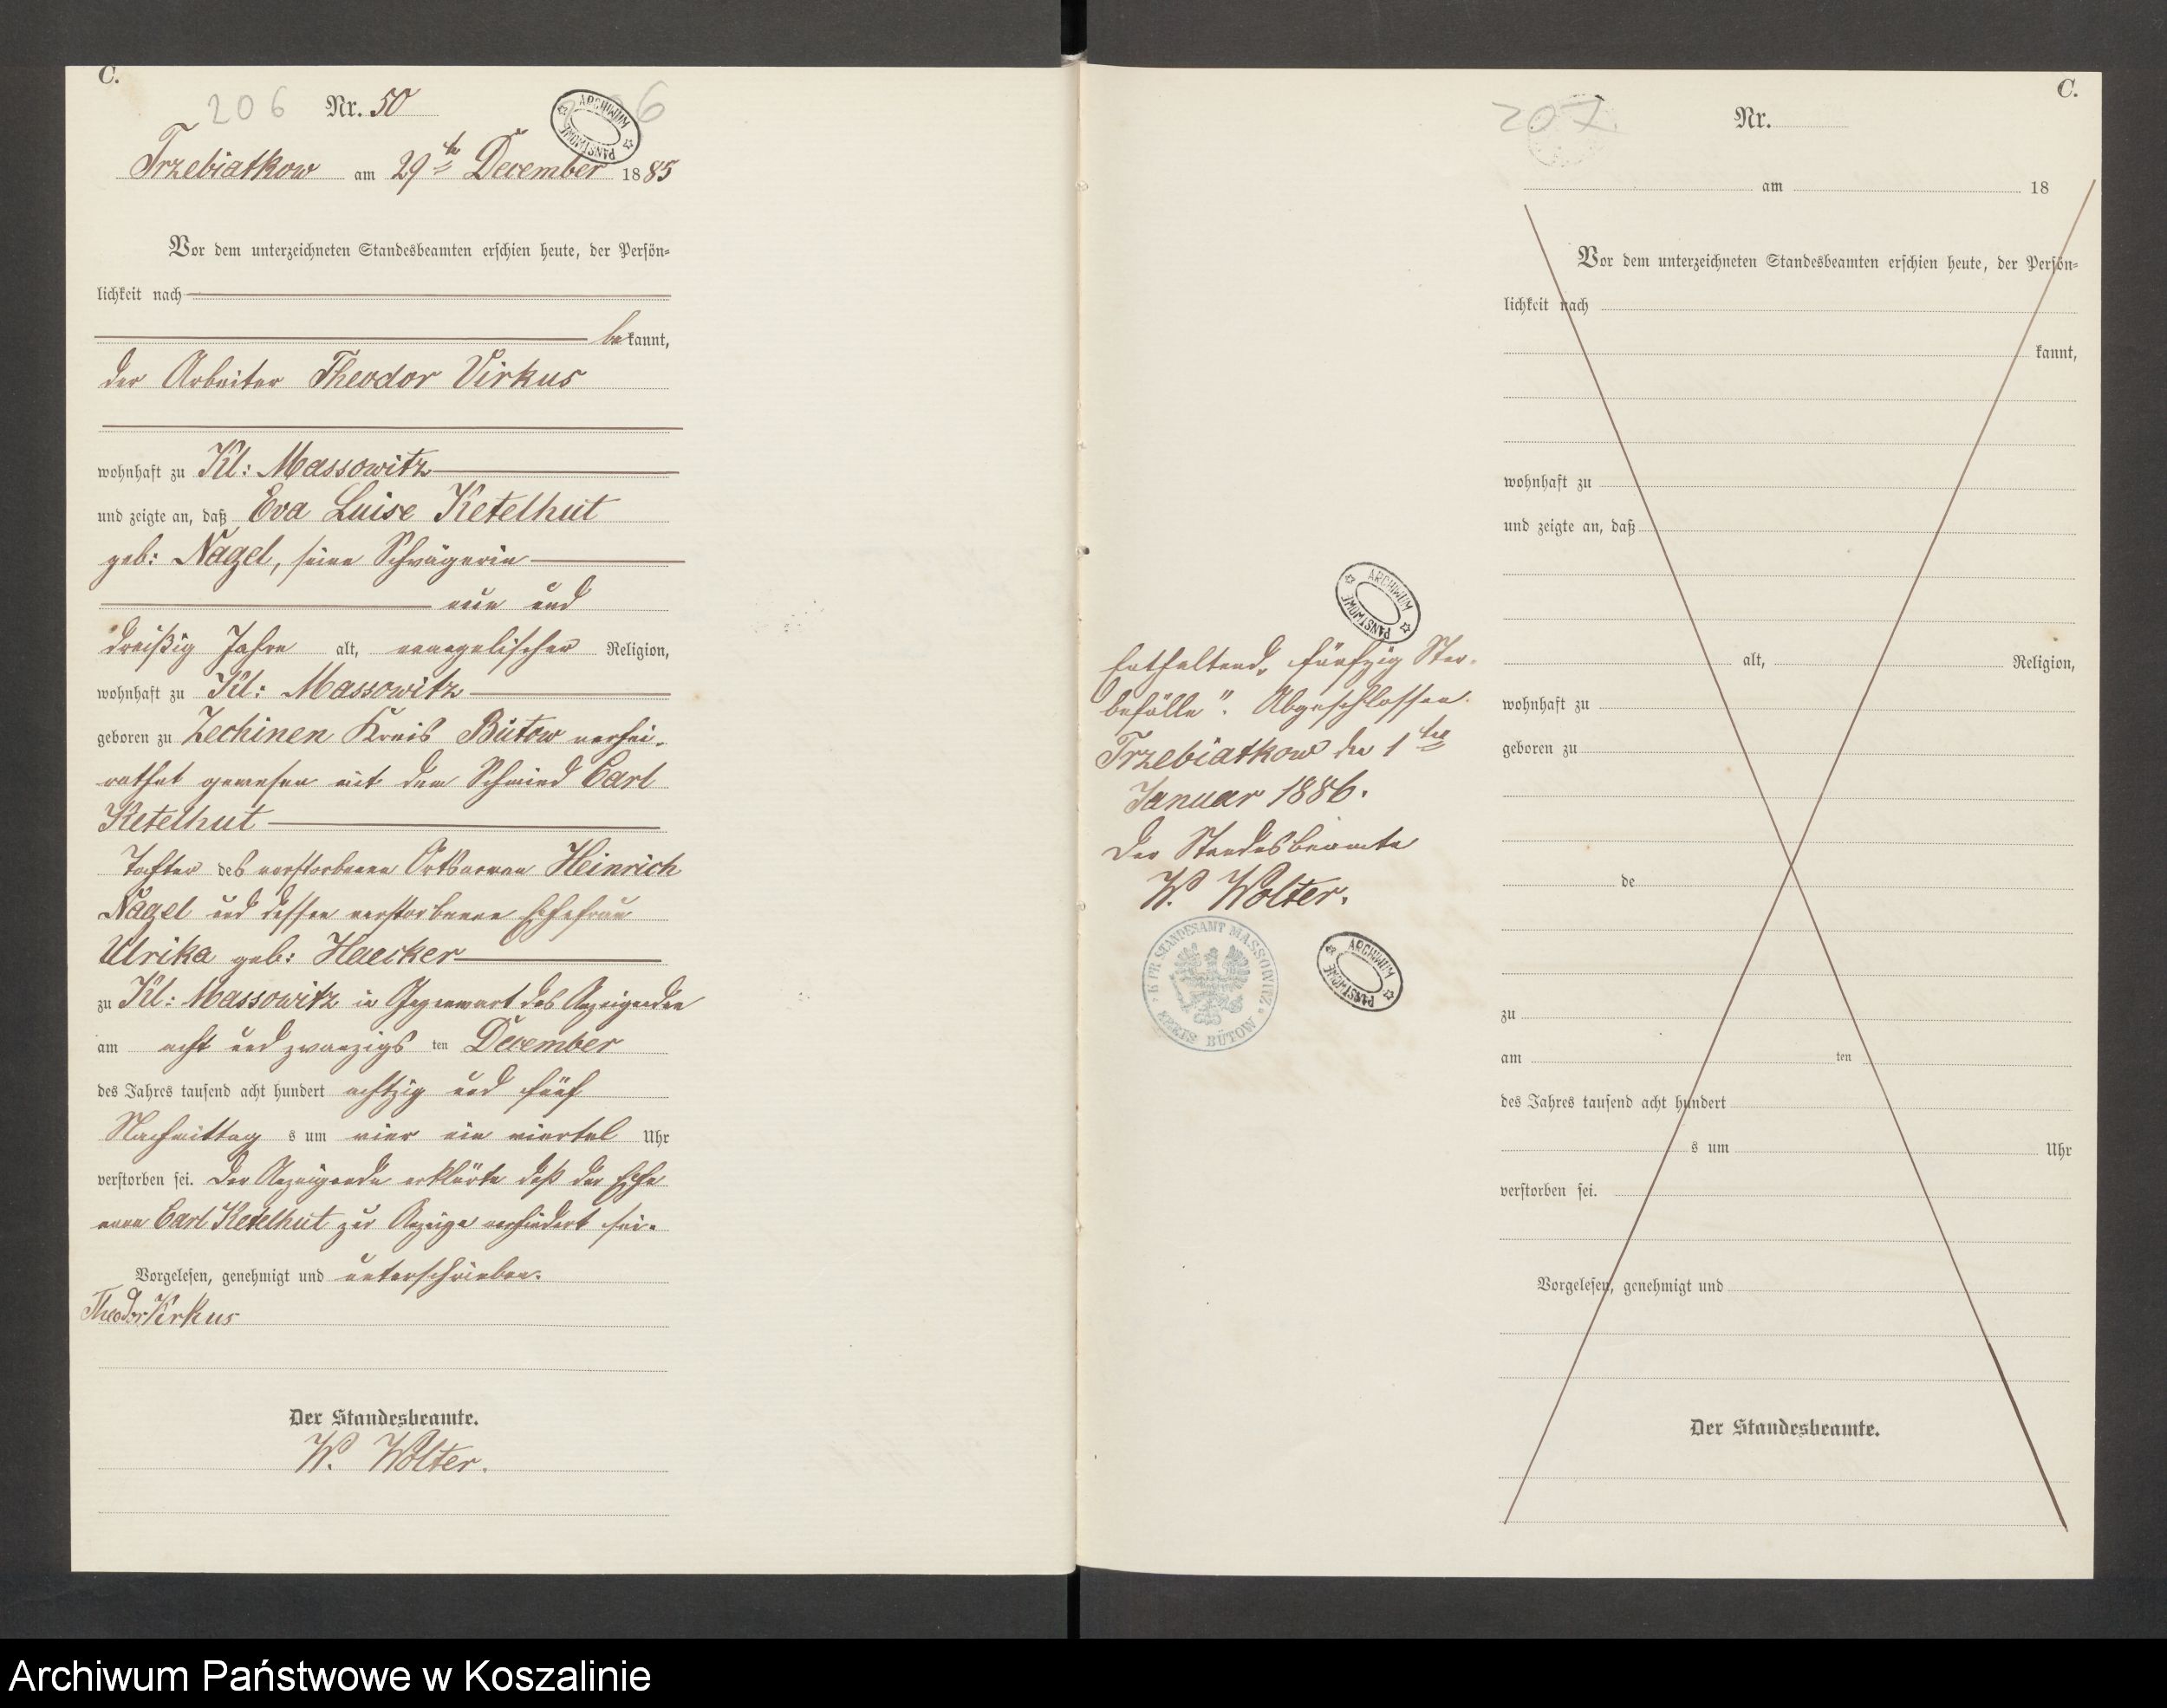 C.
206 Nr. 50 206
ARCHIWUM PAŃSTWOWE
Trzebiatkow am 29ten December 1885
Vor dem unterzeichneten Standesbeamten erschien heute, der Persön-
lichkeit nach
bekannt,
der Arbeiter Theodor Virkus
wohnhaft zu Kl: Massowitz
und zeigte an, daß Eva Luise Ketelhut
geb: Nagel, seine Schwägerin
ein und
dreißig Jahre alt, evangelischer Religion,
wohnhaft zu Kl: Massowitz
geboren zu Zechinen Kreis Bütow verhei-
rathet gewesen mit dem Schmied Carl
Ketelhut
Tochter des verstorbenen Ortsarmen Heinrich
Nagel und dessen verstorbenen Ehefrau
Ulrika geb: Haecker
zu Kl: Massowitz in Gegenwart des Anzeigenden
am acht und zwanzigs ten December
des Jahres tausend acht hundert achtzig und fünf
Nachmittag s um vier ein viertel Uhr
verstorben sei. Der Anzeigende erklärte daß der Ehe
mann Carl Ketelhut zur Anzeige verhindert sei.
Vorgelesen, genehmigt und unterschrieben.
Theodor Virkus
Der Standesbeamte.
W. Wolter.
ARCHIWUM PAŃSTWOWE
Enthaltend „fünfzig Ster-
befälle". Abgeschlossen
Trzebiatkow den 1ten
Januar 1886.
Der Standesbeamte
W. Wolter.
K. PR. STANDESAMT MASSOWITZ
KREIS BÜTOW
ARCHIWUM PAŃSTWOWE
C.
207 Nr.
am 18
Vor dem unterzeichneten Standesbeamten erschien heute, der Persön-
lichkeit nach
kannt,
wohnhaft zu
und zeigte an, daß
alt, Religion,
wohnhaft zu
geboren zu
de
zu
am ten
des Jahres tausend acht hundert
s um Uhr
verstorben sei.
Vorgelesen, genehmigt und
Der Standesbeamte.
Archiwum Państwowe w Koszalinie